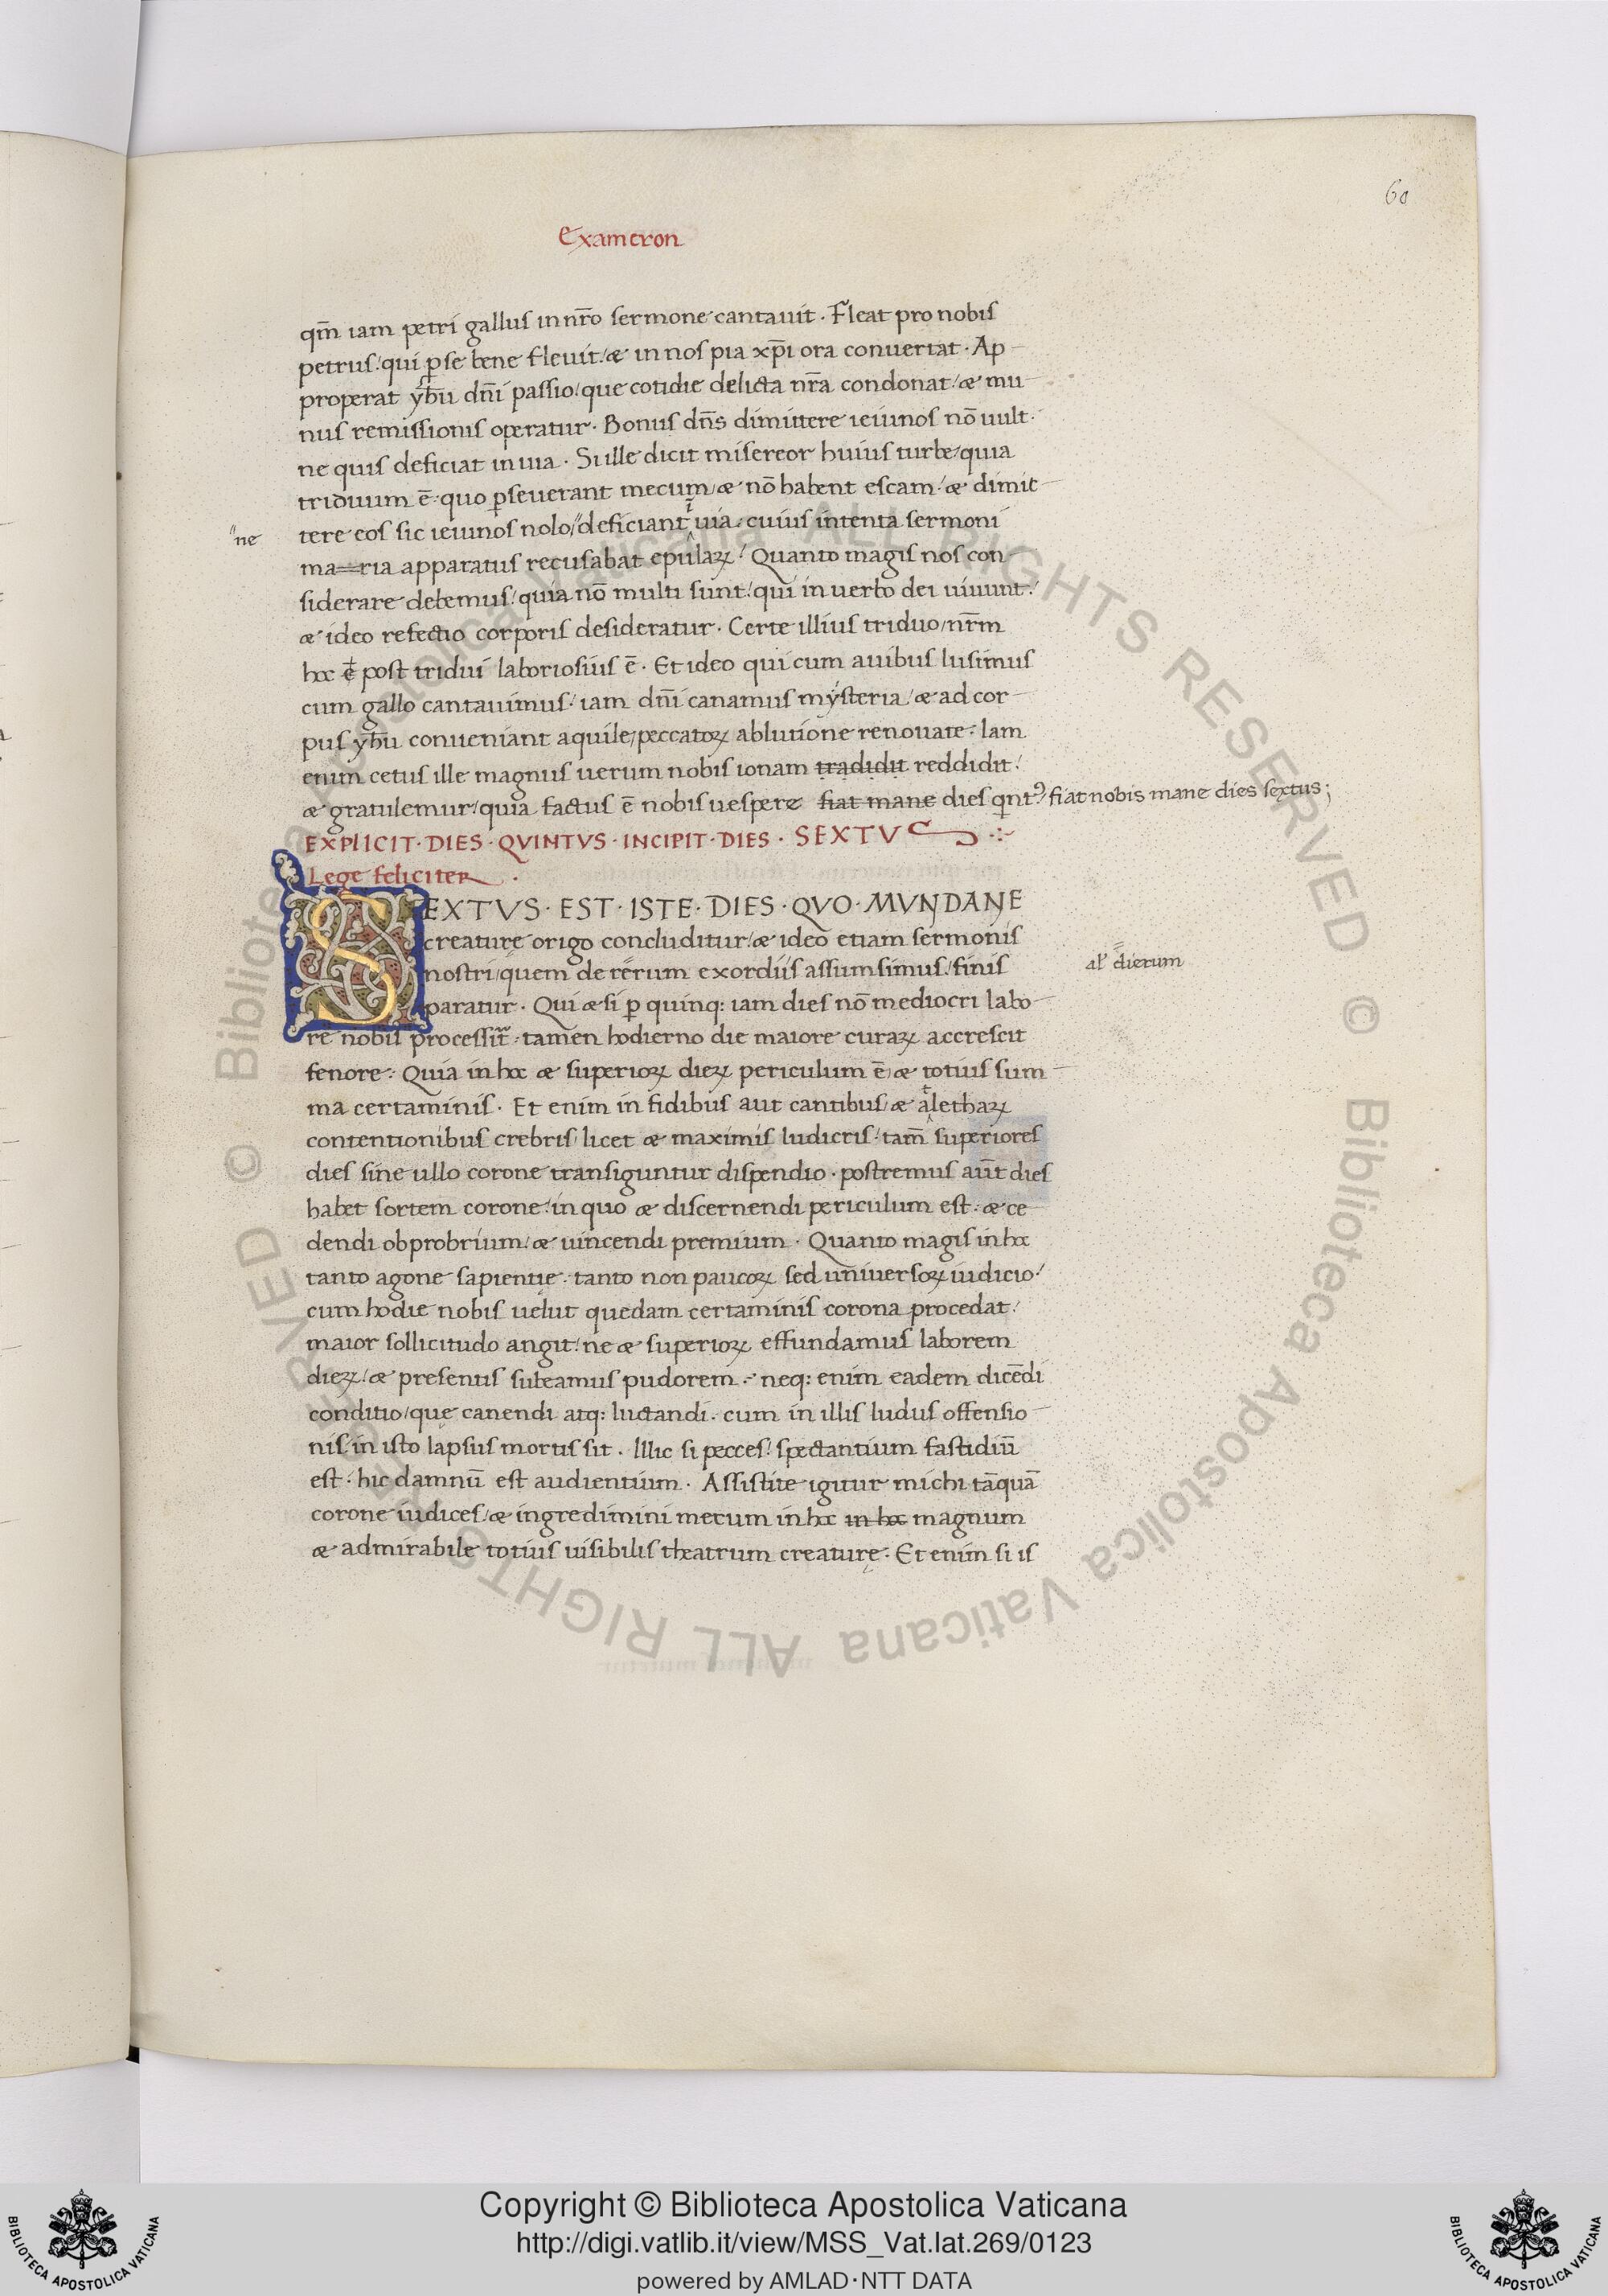 60
Exameron
qm̄ iam petri gallus in nr̄o sermone cantauit · Fleat pro nobis
petrus / qui ꝑ se bene fleuit / æ in nos pia xp̄i ora conuertat · Ap
properat yh̄u dn̄i passio / que cotidie delicta nr̄a condonat / æ mu
nus remissionis operatur · Bonus dn̄s dimittere ieiunos nō uult ·
ne quis deficiat in uia · Si ille dicit misereor huius turbe / quia
triduum ē · quo ꝑseuerant mecum / æ nō habent escam / æ dimit
"ne
tere eos sic ieiunos nolo / "deficiant ĩ uia · cuius intenta sermoni
maria apparatus recusabat epulaꝝ / Quanto magis nos con
siderare debemus / quia nō multi sunt / qui in uerbo dei uiuunt /
æ ideo refectio corporis desideratur · Certe illius triduo / nr̄m
hoc ē post tridui laboriosius ē · Et ideo qui cum auibus lusimus
cum gallo cantauimus / iam dn̄i canamus mysteria / æ ad cor
pus yh̄u conueniant aquile / peccatoꝝ ablutione renouate · Iam
enim cetus ille magnus uerum nobis ionam tradidit reddidit /
æ gratulemur / quia factus ē nobis uespere fiat mane dies qnt᷒ / fiat nobis mane dies sextus ;
EXPLICIT · DIES · QVINTVS · INCIPIT · DIES · SEXTVS
Lege feliciter ·
SEXTVS · EST · ISTE · DIES · QVO · MVNDANE
creature origo concluditur / æ ideo etiam sermonis
nostri / quem de rerum exordiis assumsimus / finis
al' dierum
paratur · Qui æ si ꝑ quinq: iam dies nō mediocri labo
re nobis processit · tamen hodierno die maiore curaꝝ accrescit
fenore · Quia in hoc æ superioꝝ dieꝝ periculum ē / æ totius sum
ma certaminis · Et enim in fidibus aut cantibus / æ atlethaꝝ
contentionibus crebris / licet æ maximis ludicris / tam̄ superiores
dies sine ullo corone transiguntur dispendio · postremus aūt dies
habet sortem corone / in quo æ discernendi periculum est · æ ce
dendi obprobrium / æ uincendi premium · Quanto magis in hoc
tanto agone sapientię · tanto non paucoꝝ sed uniuersoꝝ iudicio /
cum hodie nobis uelut quedam certaminis corona procedat /
maior sollicitudo angit / ne æ superioꝝ effundamus laborem
dieꝝ / æ presentis subeamus pudorem · neq: enim eadem dicēdi
conditio / quę canendi atq: luctandi · cum in illis ludus offensio
nis / in isto lapsus mortis sit · Illic si pecces / spectantium fastidiū
est · hic damnū est audientium · Assistite igitur michi tāquā
corone iudices / æ ingredimini mecum in hoc in hoc magnum
æ admirabile totius uisibilis theatrum creaturę · Et enim si is
© Biblioteca Apostolica Vaticana ALL RIGHTS RESERVED © Biblioteca Apostolica Vaticana ALL RIGHTS RESERVED
Copyright © Biblioteca Apostolica Vaticana
http://digi.vatlib.it/view/MSS_Vat.lat.269/0123
powered by AMLAD·NTT DATA
BIBLIOTECA APOSTOLICA VATICANA
BIBLIOTECA APOSTOLICA VATICANA